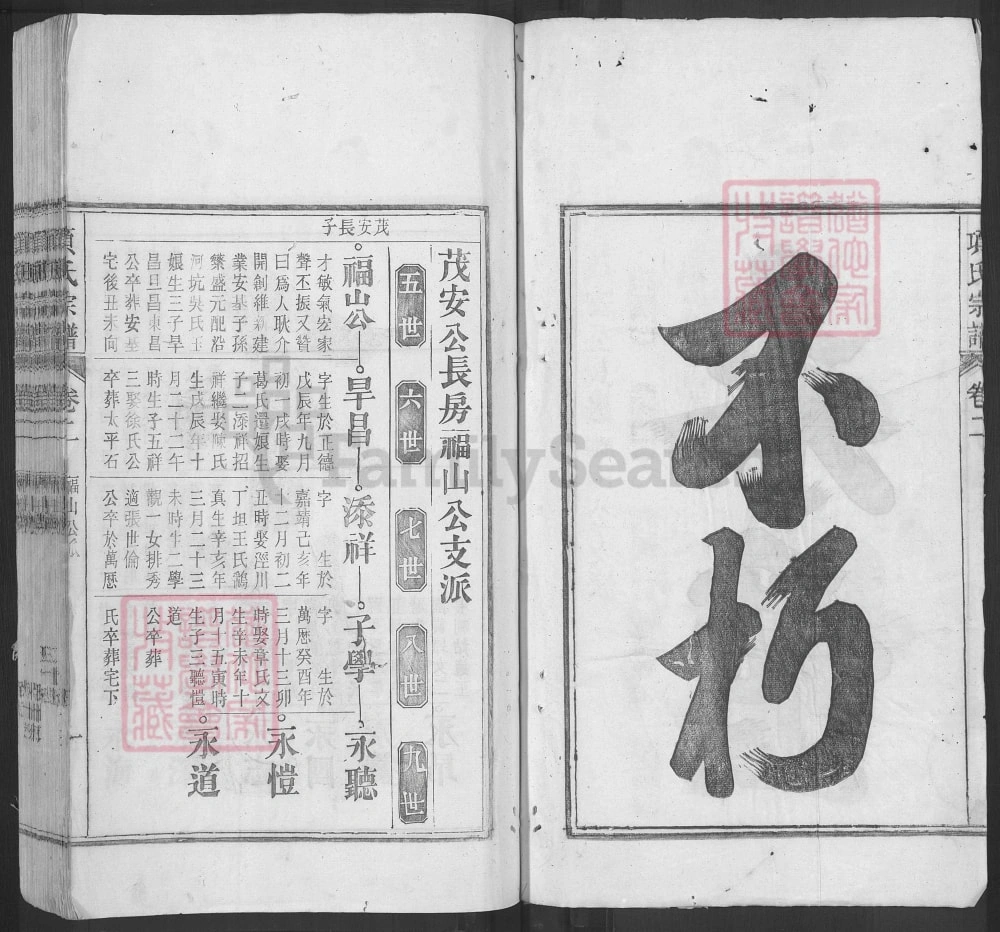 項氏宗譜
卷二
不朽
茂安公長房福山公支派
五世
六世
七世
八世
九世
茂安長子
福山公
才敏氣宏家
聲丕振又贊
曰爲人耿介
開創維新建
業安基子孫
繁盛元配沿
河坑吳氏玉
娘生三子旱
昌旦昌東昌
公卒葬安基
宅後丑未向
旱昌
字生於正德
戊辰年九月
初一戌時娶
葛氏還娘生
子二添祥招
祥繼娶陳氏
生戊辰年十
月二十二午
時生子五祥
三娶徐氏公
卒葬太平石
添祥
字 生於
嘉靖己亥年
十二月初二
丑時娶涇川
丁坦王氏鸞
真生辛亥年
三月二十三
未時生二學
觀一女排秀
適張世倫
公卒於萬歷
子學
字 生於
萬歷癸酉年
三月十三卯
時娶章氏文
生辛未年十
月十五寅時
生子三聽愷
道
公卒葬
氏卒葬宅下
永聽
永愷
永道
項氏宗譜
卷二
福山公
一
FamilySear